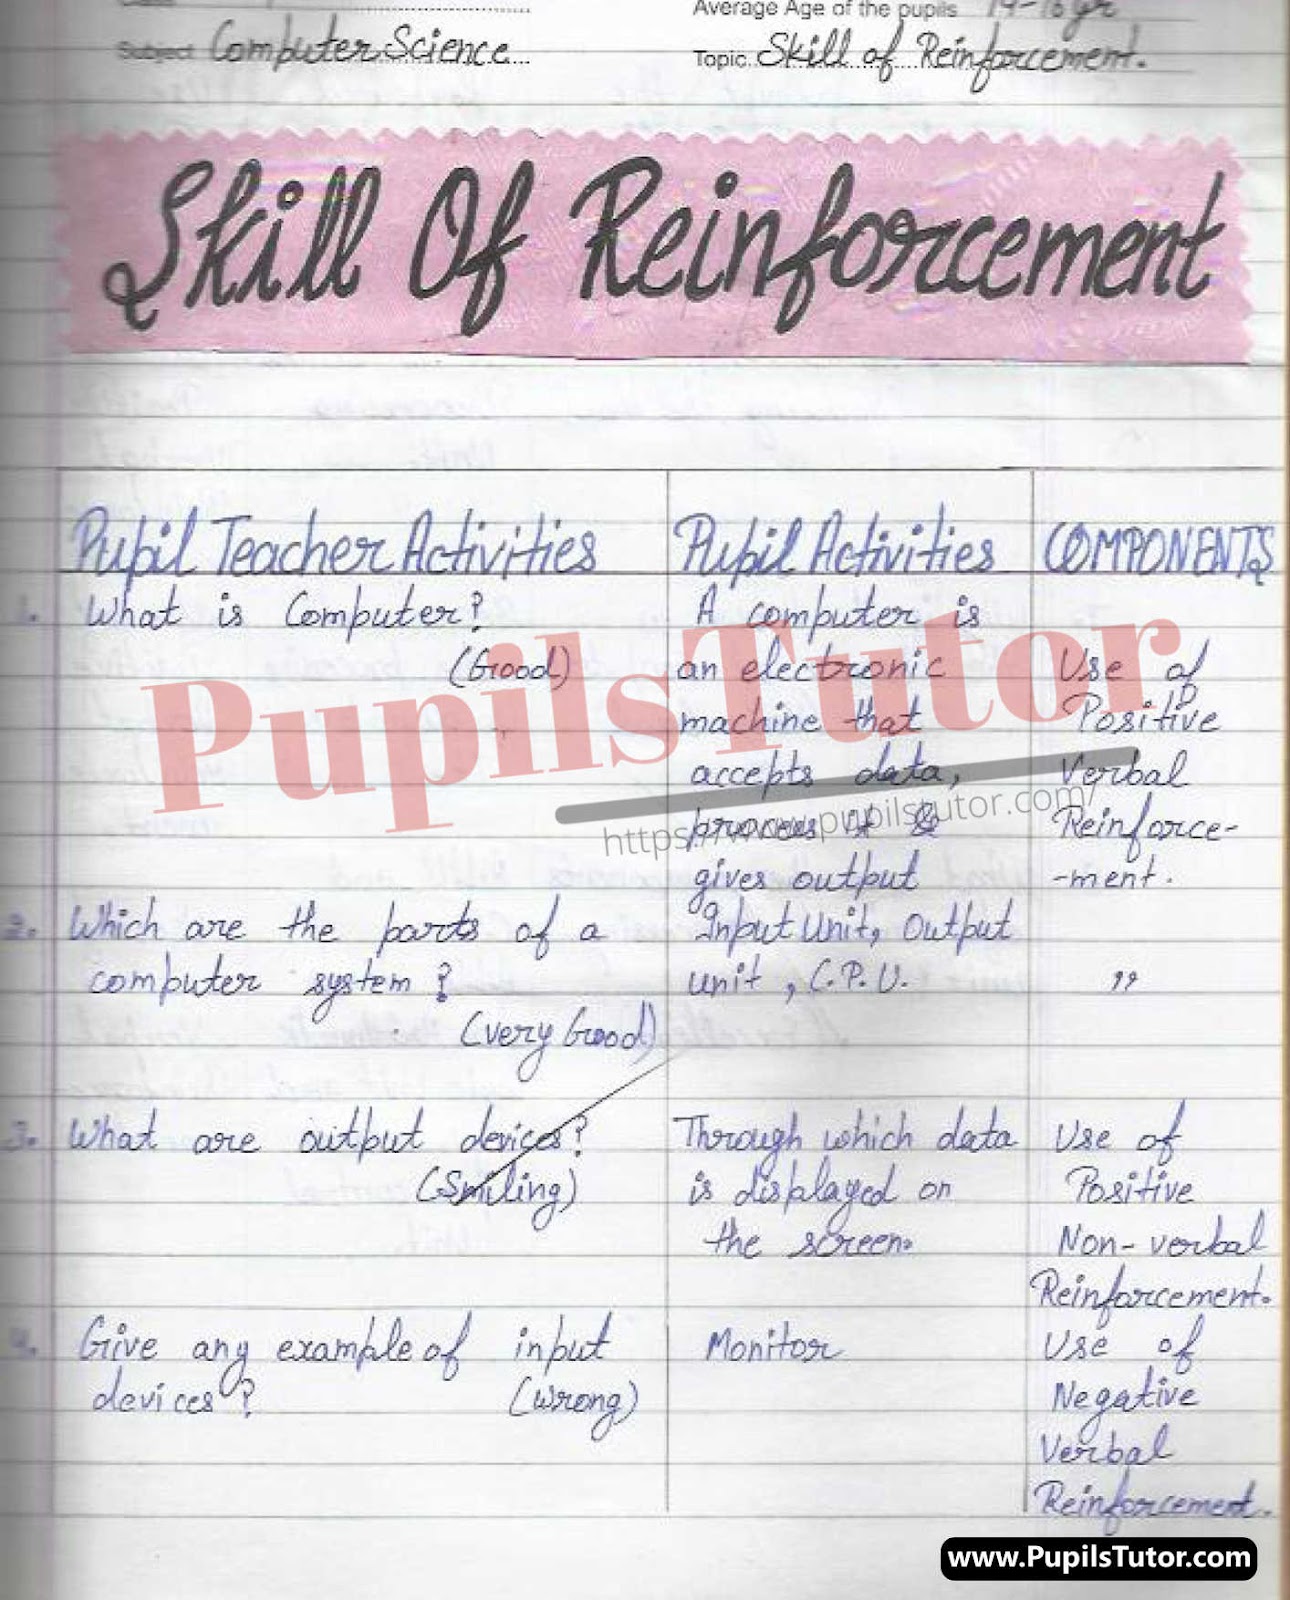 Average Age of the pupils 14-16 yr
Subject Computer Science
Topic Skill of Reinforcement.
Skill Of Reinforcement
Pupil Teacher Activities Pupil Activities COMPONENTS
1. What is Computer? A computer is
(Good) an electronic Use of
machine that Positive
accepts data, Verbal
process it & Reinforce-
gives output -ment.
2. Which are the parts of a Input Unit, Output
computer system? unit, C.P.U. ,,
(Very Good)
3. What are output devices? Through which data Use of
(Smiling) is displayed on Positive
the screen. Non-verbal
Reinforcement.
4. Give any example of input Monitor Use of
devices? (Wrong) Negative
Verbal
Reinforcement.
PupilsTutor
https://www.pupilstutor.com/
www.PupilsTutor.com